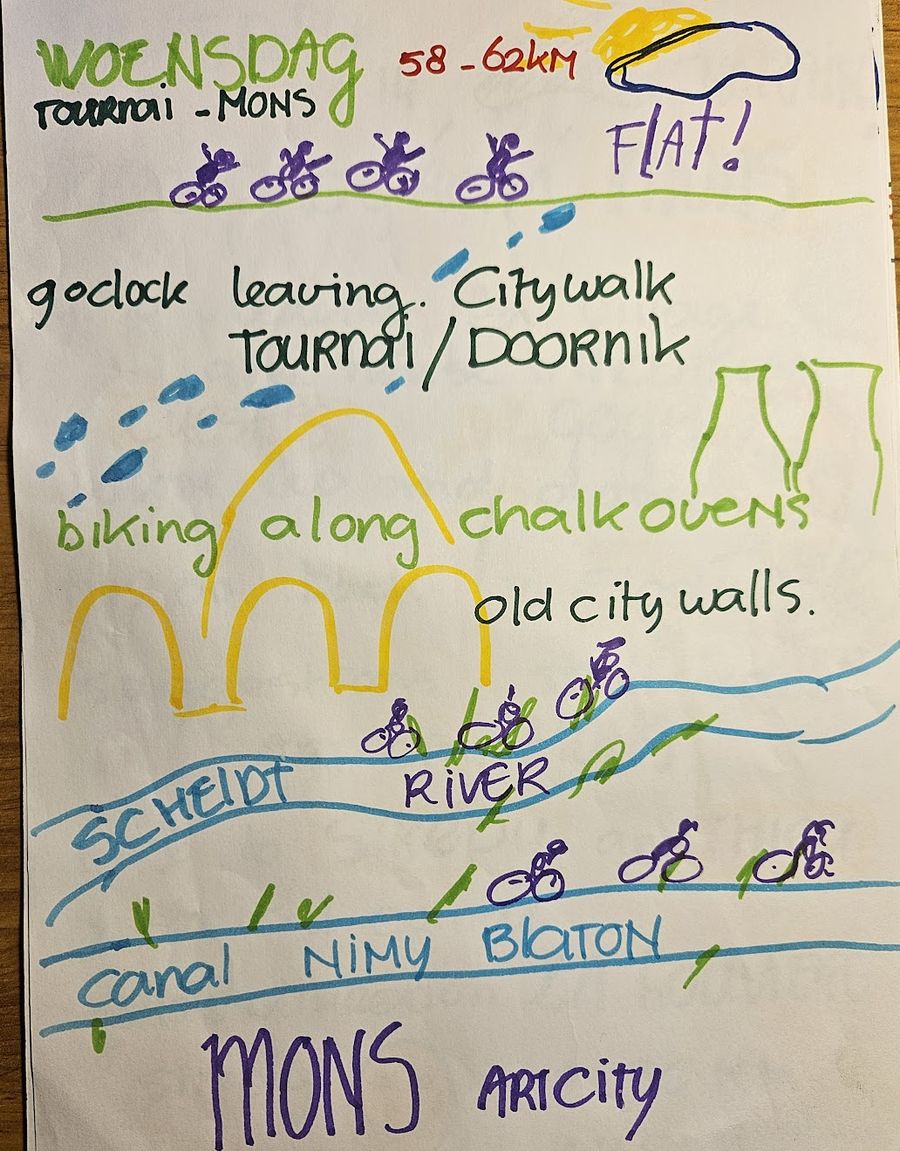 WOENSDAG 58 - 62KM
TOURNAI - MONS
FLAT!
9 oclock leaving. Citywalk
TOURNAI / DOORNIK
biking along chalkovens
old city walls.
SCHELDT RIVER
Canal NIMY BLATON
MONS ARTCITY